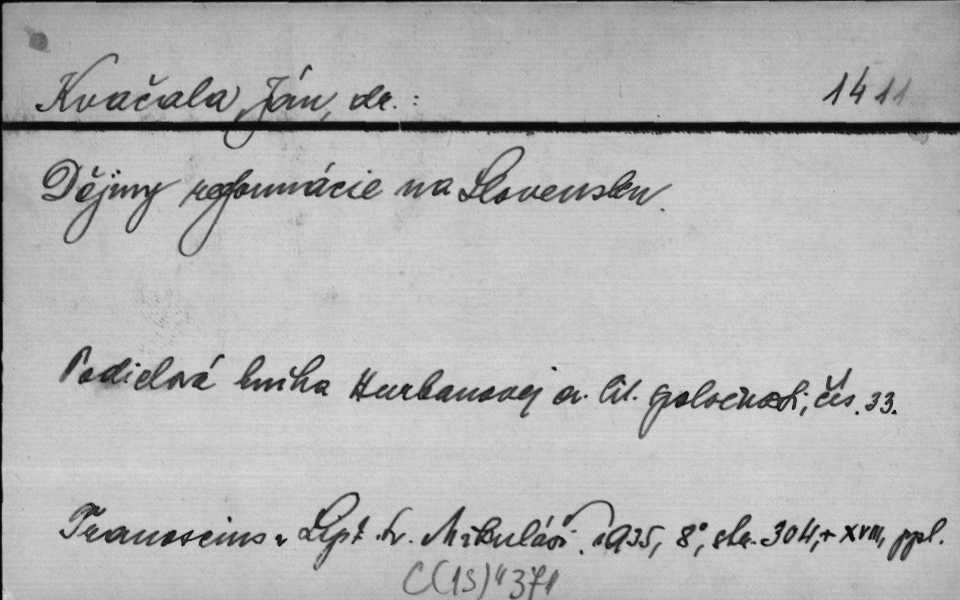 Kvačala, Ján, dr.: 1411
Dějiny reformácie na Slovensku.
Podielová kniha Hurbanovej a. lit. spoločnosti, čís. 33.
Tranoscius v Lipt. Sv. Mikuláši. 1935, 8°, str. 304, + XVIII, ppl.
C(1S)"371